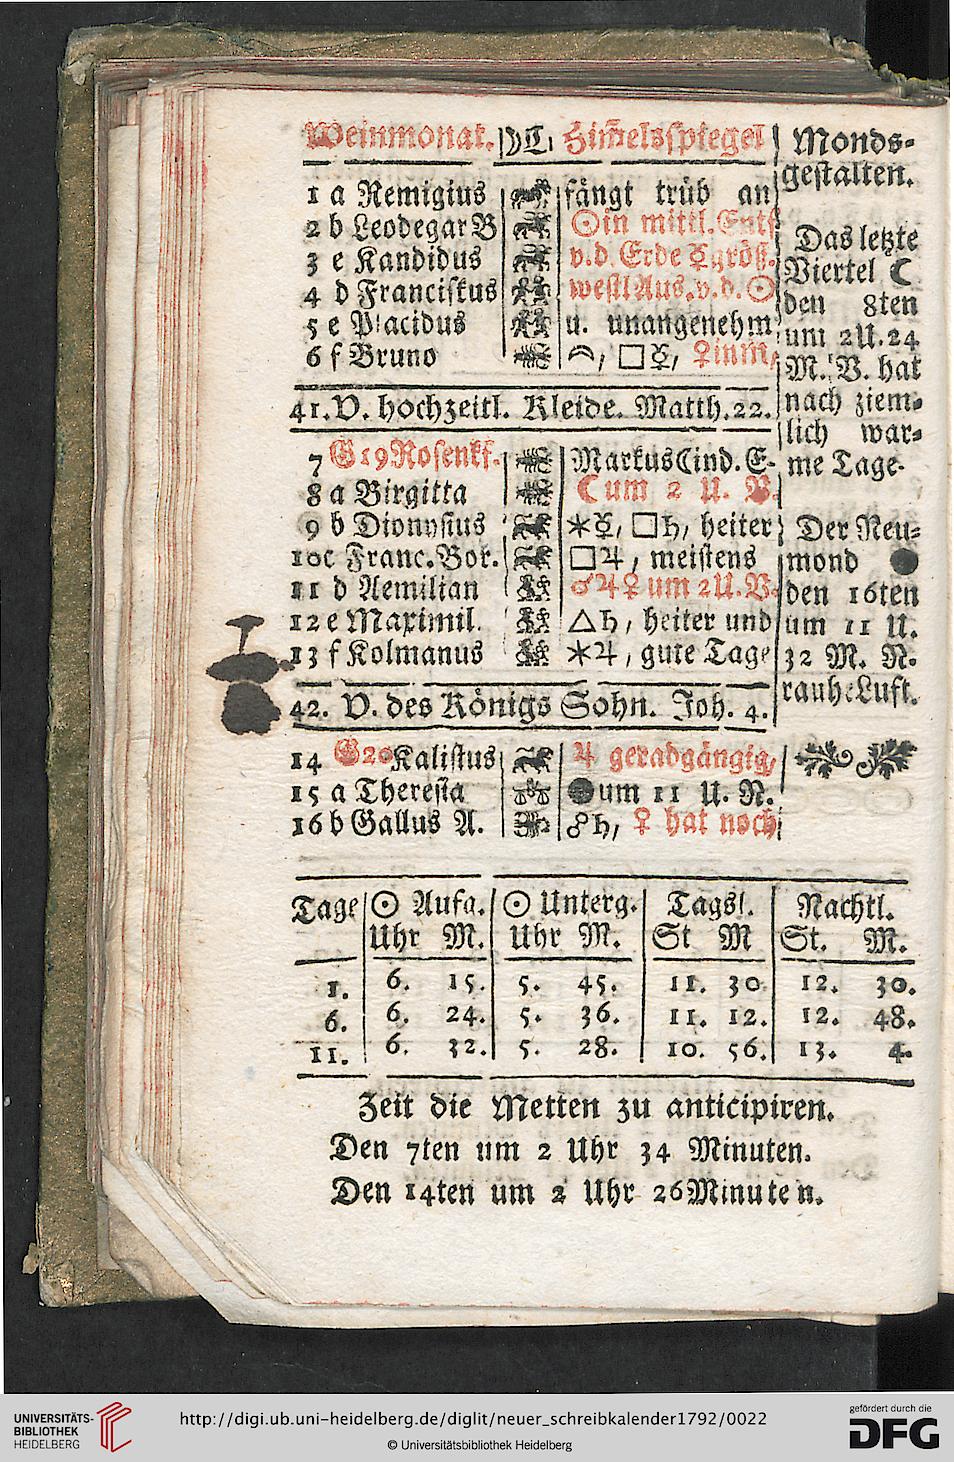 Weinmonat. ☽ L. Him̃elsspiegel
1 a Remigius fängt trüb an
2 b Leodegar B ☉in mittl. Entf
3 c Kandidus v.d. Erde ☿größ.
4 d Franciskus westl Aus. v. d. ☉
5 e Placidus u. unangenehm
6 f Bruno □☿, ♀in
41. V. hochzeitl. Kleide. Matth. 22.
7 G 19 Rosenkf. Markus ☾ in d. E.
8 a Birgitta ☾ um 2 U. V.
9 b Dionysius ✶☿, □♄, heiter
10 c Franc. Bor. □♃, meistens
11 d Aemilian ☌♃♀ um 2 U. V.
12 e Maximil. △♄, heiter und
13 f Kolmanus ✶♃, gute Tage
42. V. des Königs Sohn. Joh. 4.
14 G 20 Kalistus ♃ geradgängig,
15 a Theresia ●um 11 U. N.
16 b Gallus A. ☍♄, ♀ hat noch
Monds-
gestalten.
Das letzte
Viertel ☾
den 8ten
um 2 U. 24
M. V. hat
nach ziem-
lich war-
me Tage.
Der Neu-
mond ●
den 16ten
um 11 U.
32 M. N.
rauhe Luft.
Tage ☉ Aufg. ☉ Unterg. Tagsl. Nachtl.
Uhr M. Uhr M. St M St. M.
1. 6. 15. 5. 45. 11. 30 12. 30.
6. 6. 24. 5. 36. 11. 12. 12. 48.
11. 6. 32. 5. 28. 10. 56. 13. 4.
Zeit die Metten zu anticipiren.
Den 7ten um 2 Uhr 34 Minuten.
Den 14ten um 2 Uhr 26 Minuten.
UNIVERSITÄTS-
BIBLIOTHEK
HEIDELBERG
http://digi.ub.uni-heidelberg.de/diglit/neuer_schreibkalender1792/0022
© Universitätsbibliothek Heidelberg
gefördert durch die
DFG